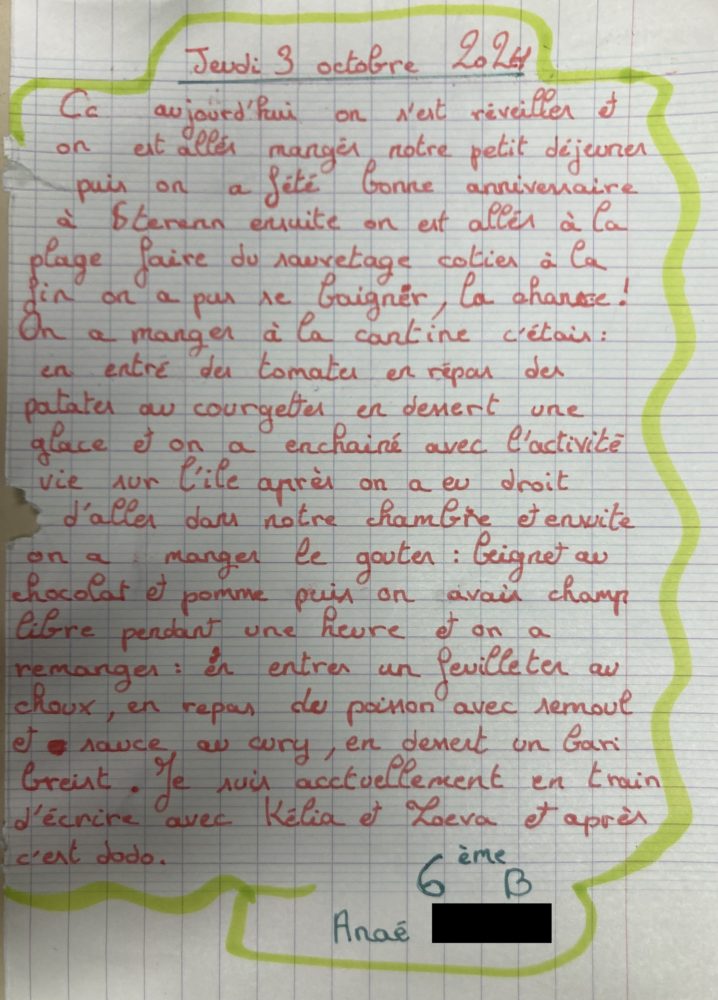 Jeudi 3 octobre 2024
Cc aujourd'hui on s'est réveiller et
on est allés mangés notre petit déjeuner
puis on a fété bonne anniversaire
à Sterenn ensuite on est allés à la
plage faire du sauvetage cotier à la
fin on a pus se baigner, la chance !
On a manger à la cantine c'étais :
en entré des tomates en répas des
patates au courgettes en dessert une
glace et on a enchainé avec l'activité
vie sur l'ile après on a eu droit
d'aller dans notre chambre et ensuite
on a manger le gouter : beignet au
chocolat et pomme puis on avais champ
libre pendant une heure et on a
remanger : en entrer un feuilleter au
choux, en repas du poisson avec semoul
et sauce au cury, en dessert un bari
breist. Je suis acctuellement en train
d'écrire avec Kélia et Loeva et après
c'est dodo.
6ème B
Anaé